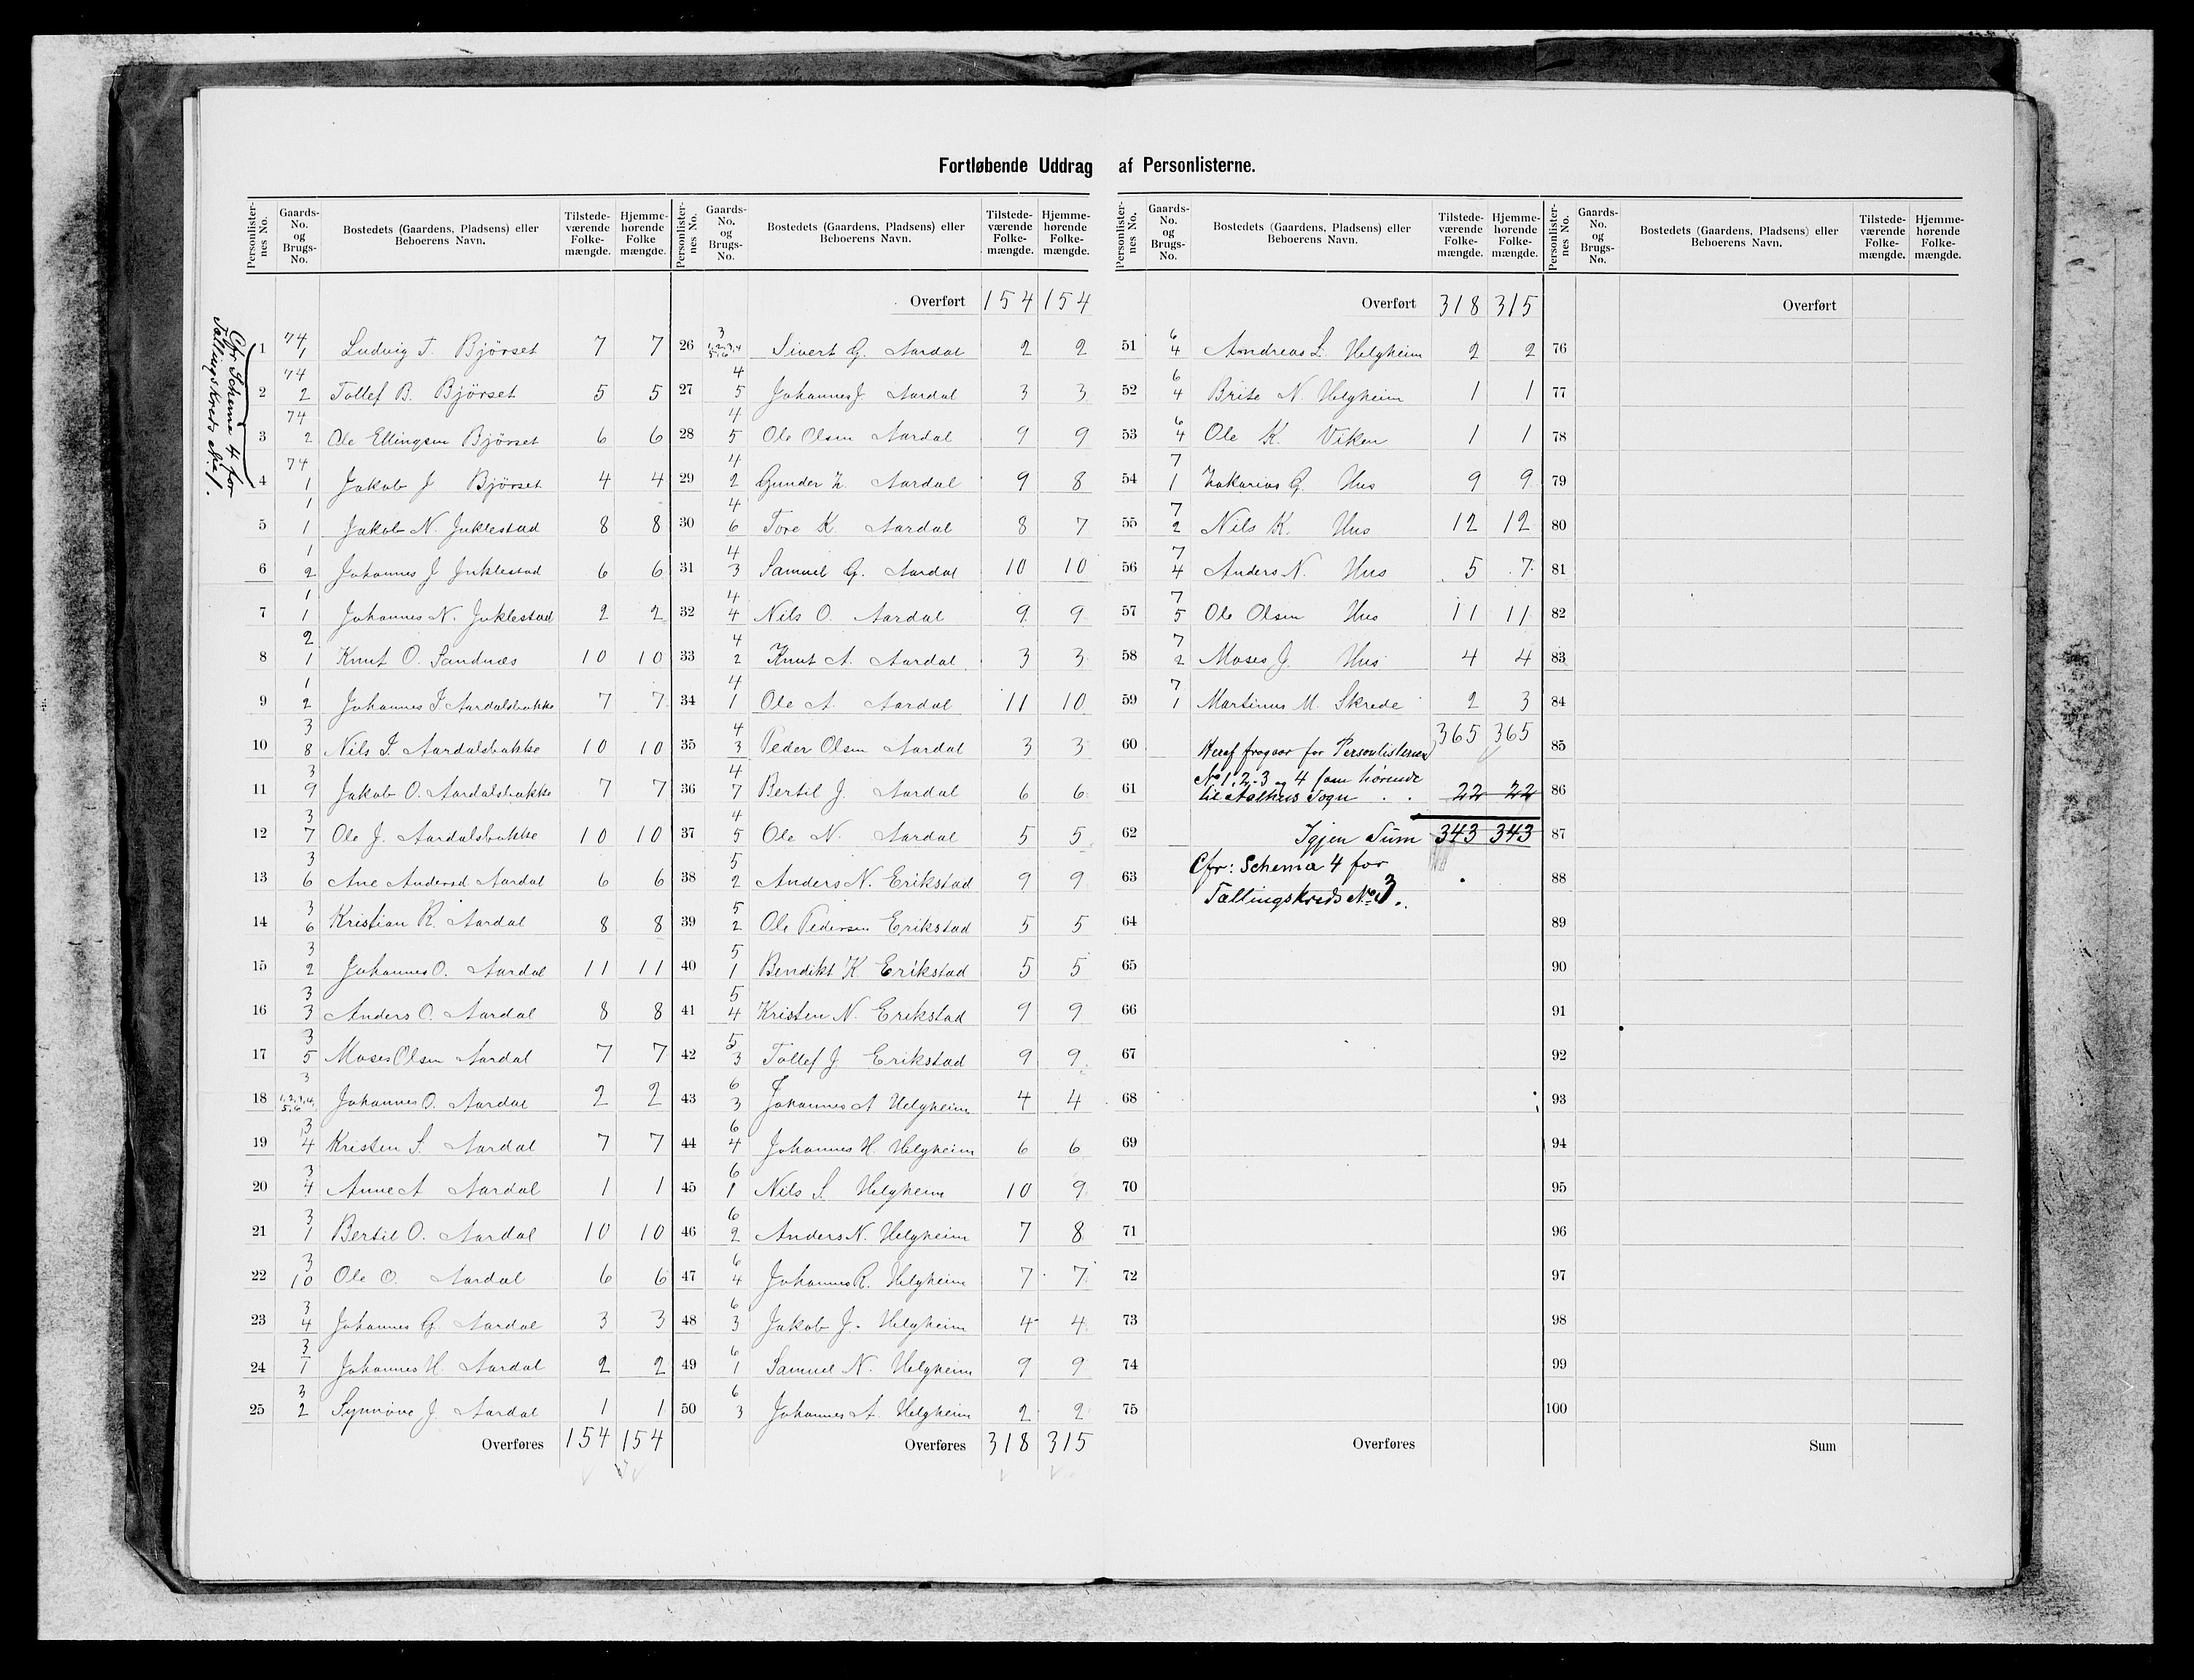 Fortløbende Uddrag af Personlisterne.
Personlister-nes No. Gaards-No. og Brugs-No. Bostedets (Gaardens, Pladsens) eller Beboerens Navn. Tilstede-værende Folke-mængde. Hjemme-hørende Folke mængde.
Cfr Schema 4 for
Tællingskreds No 1.
1 74 1 Ludvig T. Bjørset 7 7
2 74 2 Tollef B. Bjørset 5 5
3 74 2 Ole Ellingsen Bjørset 6 6
4 74 1 Jakob J Bjørset 4 4
5 1 1 Jakob N. Juklestad 8 8
6 1 2 Johannes J Juklestad 6 6
7 1 1 Johannes N. Juklestad 2 2
8 2 1 Knut O. Sandnæs 10 10
9 1 2 Johannes I Aardalsbakke 7 7
10 3 8 Nils I. Aardalsbakke 10 10
11 3 9 Jakob O. Aardalsbakke 7 7
12 3 7 Ole J. Aardalsbakke 10 10
13 3 6 Ane Andersd Aardal 6 6
14 3 6 Kristian R. Aardal 8 8
15 3 2 Johannes O. Aardal 11 11
16 3 3 Anders O. Aardal 8 8
17 3 5 Moses Olsen Aardal 7 7
18 3 1,2,3,4, 5,6 Johannes O. Aardal 2 2
19 3 4 Kristen S. Aardal 7 7
20 3 4 Anne A Aardal 1 1
21 3 1 Bertil O. Aardal 10 10
22 3 10 Ole O. Aardal 6 6
23 3 4 Johannes G. Aardal 3 3
24 3 1 Johannes H. Aardal 2 2
25 3 2 Synnöve J. Aardal 1 1
Overføres 154 154
Personlister-nes No. Gaards-No. og Brugs-No. Bostedets (Gaardens, Pladsens) eller Beboerens Navn. Tilstede-værende Folke-mængde. Hjemme-hørende Folke-mængde.
Overført 154 154
26 3 1,2,3,4 5,6 Sivert G. Aardal 2 2
27 4 5 Johannes J. Aardal 3 3
28 4 5 Ole Olsen Aardal 9 9
29 4 2 Gunder Z. Aardal 9 8
30 4 6 Tore K Aardal 8 7
31 4 3 Samuel G. Aardal 10 10
32 4 4 Nils O. Aardal 9 9
33 4 2 Knut A. Aardal 3 3
34 4 1 Ole A. Aardal 11 10
35 4 3 Peder Olsen Aardal 3 3
36 4 7 Bertil J. Aardal 6 6
37 4 5 Ole N. Aardal 5 5
38 5 2 Anders N. Erikstad 9 9
39 5 2 Ole Pedersen Erikstad 5 5
40 5 1 Bendikt K Erikstad 5 5
41 5 4 Kristen N. Erikstad 9 9
42 5 3 Tollef J Erikstad 9 9
43 6 3 Johannes A Helgheim 4 4
44 6 4 Johannes H. Helgheim 6 6
45 6 1 Nils S. Helgheim 10 9
46 6 2 Anders N. Helgheim 7 8
47 6 4 Johannes R. Helgheim 7 7
48 6 3 Jakob J. Helgheim 4 4
49 6 1 Samuel N. Helgheim 9 9
50 6 3 Johannes A. Helgheim 2 2
Overføres 318 315
Personlister-nes No. Gaards-No. og Brugs-No. Bostedets (Gaardens, Pladsens) eller Beboerens Navn. Tilstede-værende Folke-mængde. Hjemme-hørende Folke-mængde.
Overført 318 315
51 6 4 Andreas L. Helgheim 2 2
52 6 4 Brite N. Helgheim 1 1
53 6 4 Ole K. Viken 1 1
54 7 1 Zakarias G. Hus 9 9
55 7 2 Nils K. Hus 12 12
56 7 4 Anders N. Hus 5 7
57 7 5 Ole Olsen Hus 11 11
58 7 2 Moses J. Hus 4 4
59 7 1 Martinus M. Skrede 2 3
365 365
60 Heraf fragaar for Personlisterne
61 No 1, 2, 3 og 4 som hörende
til Aalhus Sogn . . 22 22
62 Igjen Sum 343 343
63 Cfr: Schema 4 for
Tællingskreds No 3.
64
65
66
67
68
69
70
71
72
73
74
75
Overføres
Personlister-nes No. Gaards-No. og Brugs-No. Bostedets (Gaardens, Pladsens) eller Beboerens Navn. Tilstede-værende Folke-mængde. Hjemme-hørende Folke-mængde.
Overført
76
77
78
79
80
81
82
83
84
85
86
87
88
89
90
91
92
93
94
95
96
97
98
99
100
Sum